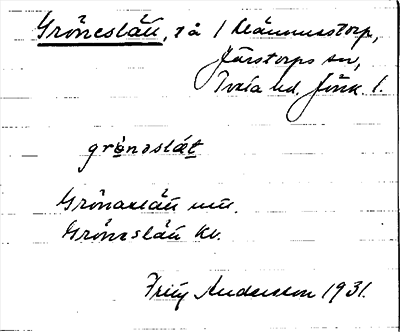 Gröneslätt, på 1 Månnusstorp,
Järstorps sn,
Tveta hd. Jönk. l.
grònəslæt
Grönaslätt un.
Gröneslätt kv.
Fritz Andersson 1931.